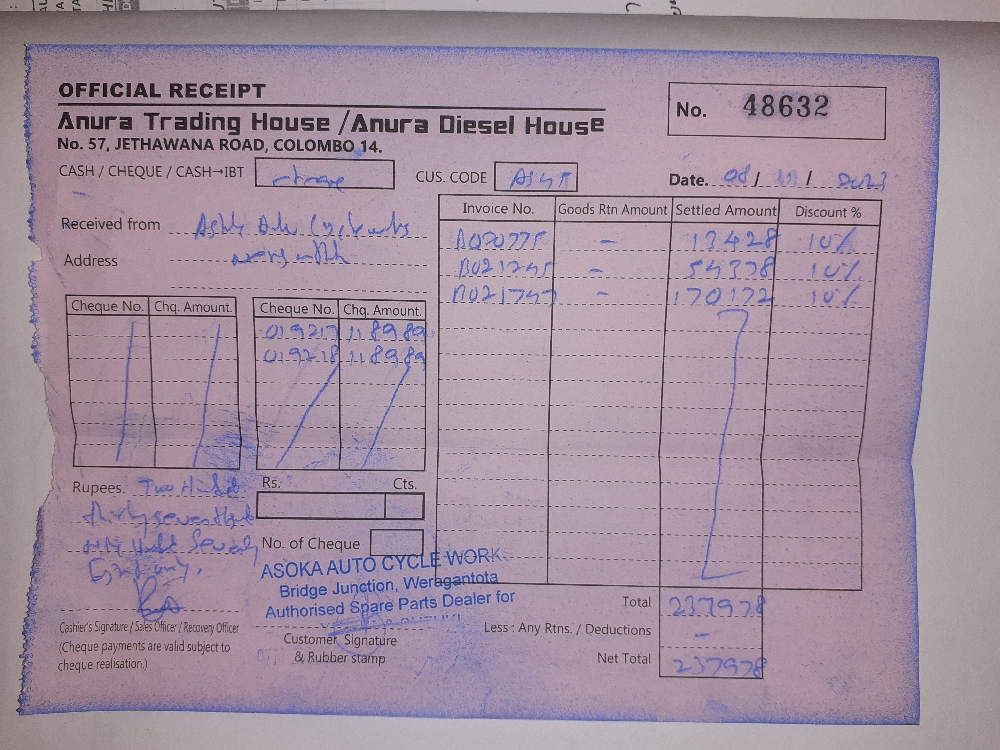 OFFICIAL RECEIPT
No. 48632
Anura Trading House /Anura Diesel House
No. 57, JETHAWANA ROAD, COLOMBO 14.
CASH / CHEQUE / CASH→IBT
CUS. CODE
Date. 08/ / 2023
Received from
Address
Invoice No. Goods Rtn Amount Settled Amount Discount %
– 13428 10%
– 54378 10%
– 170172 10%
Cheque No. Chq. Amount. Cheque No. Chq. Amount.
019217 118989
019218 118989
Rupees. Two
thirty seven
Seventy
Eight only.
Rs. Cts.
No. of Cheque
ASOKA AUTO CYCLE WORK
Bridge Junction, Weragantota
Authorised Spare Parts Dealer for
Cashier's Signature / Sales Officer / Recovery Officer
(Cheque payments are valid subject to
cheque realisation.)
Customer Signature
& Rubber stamp
Total 237978
Less : Any Rtns. / Deductions –
Net Total 237978